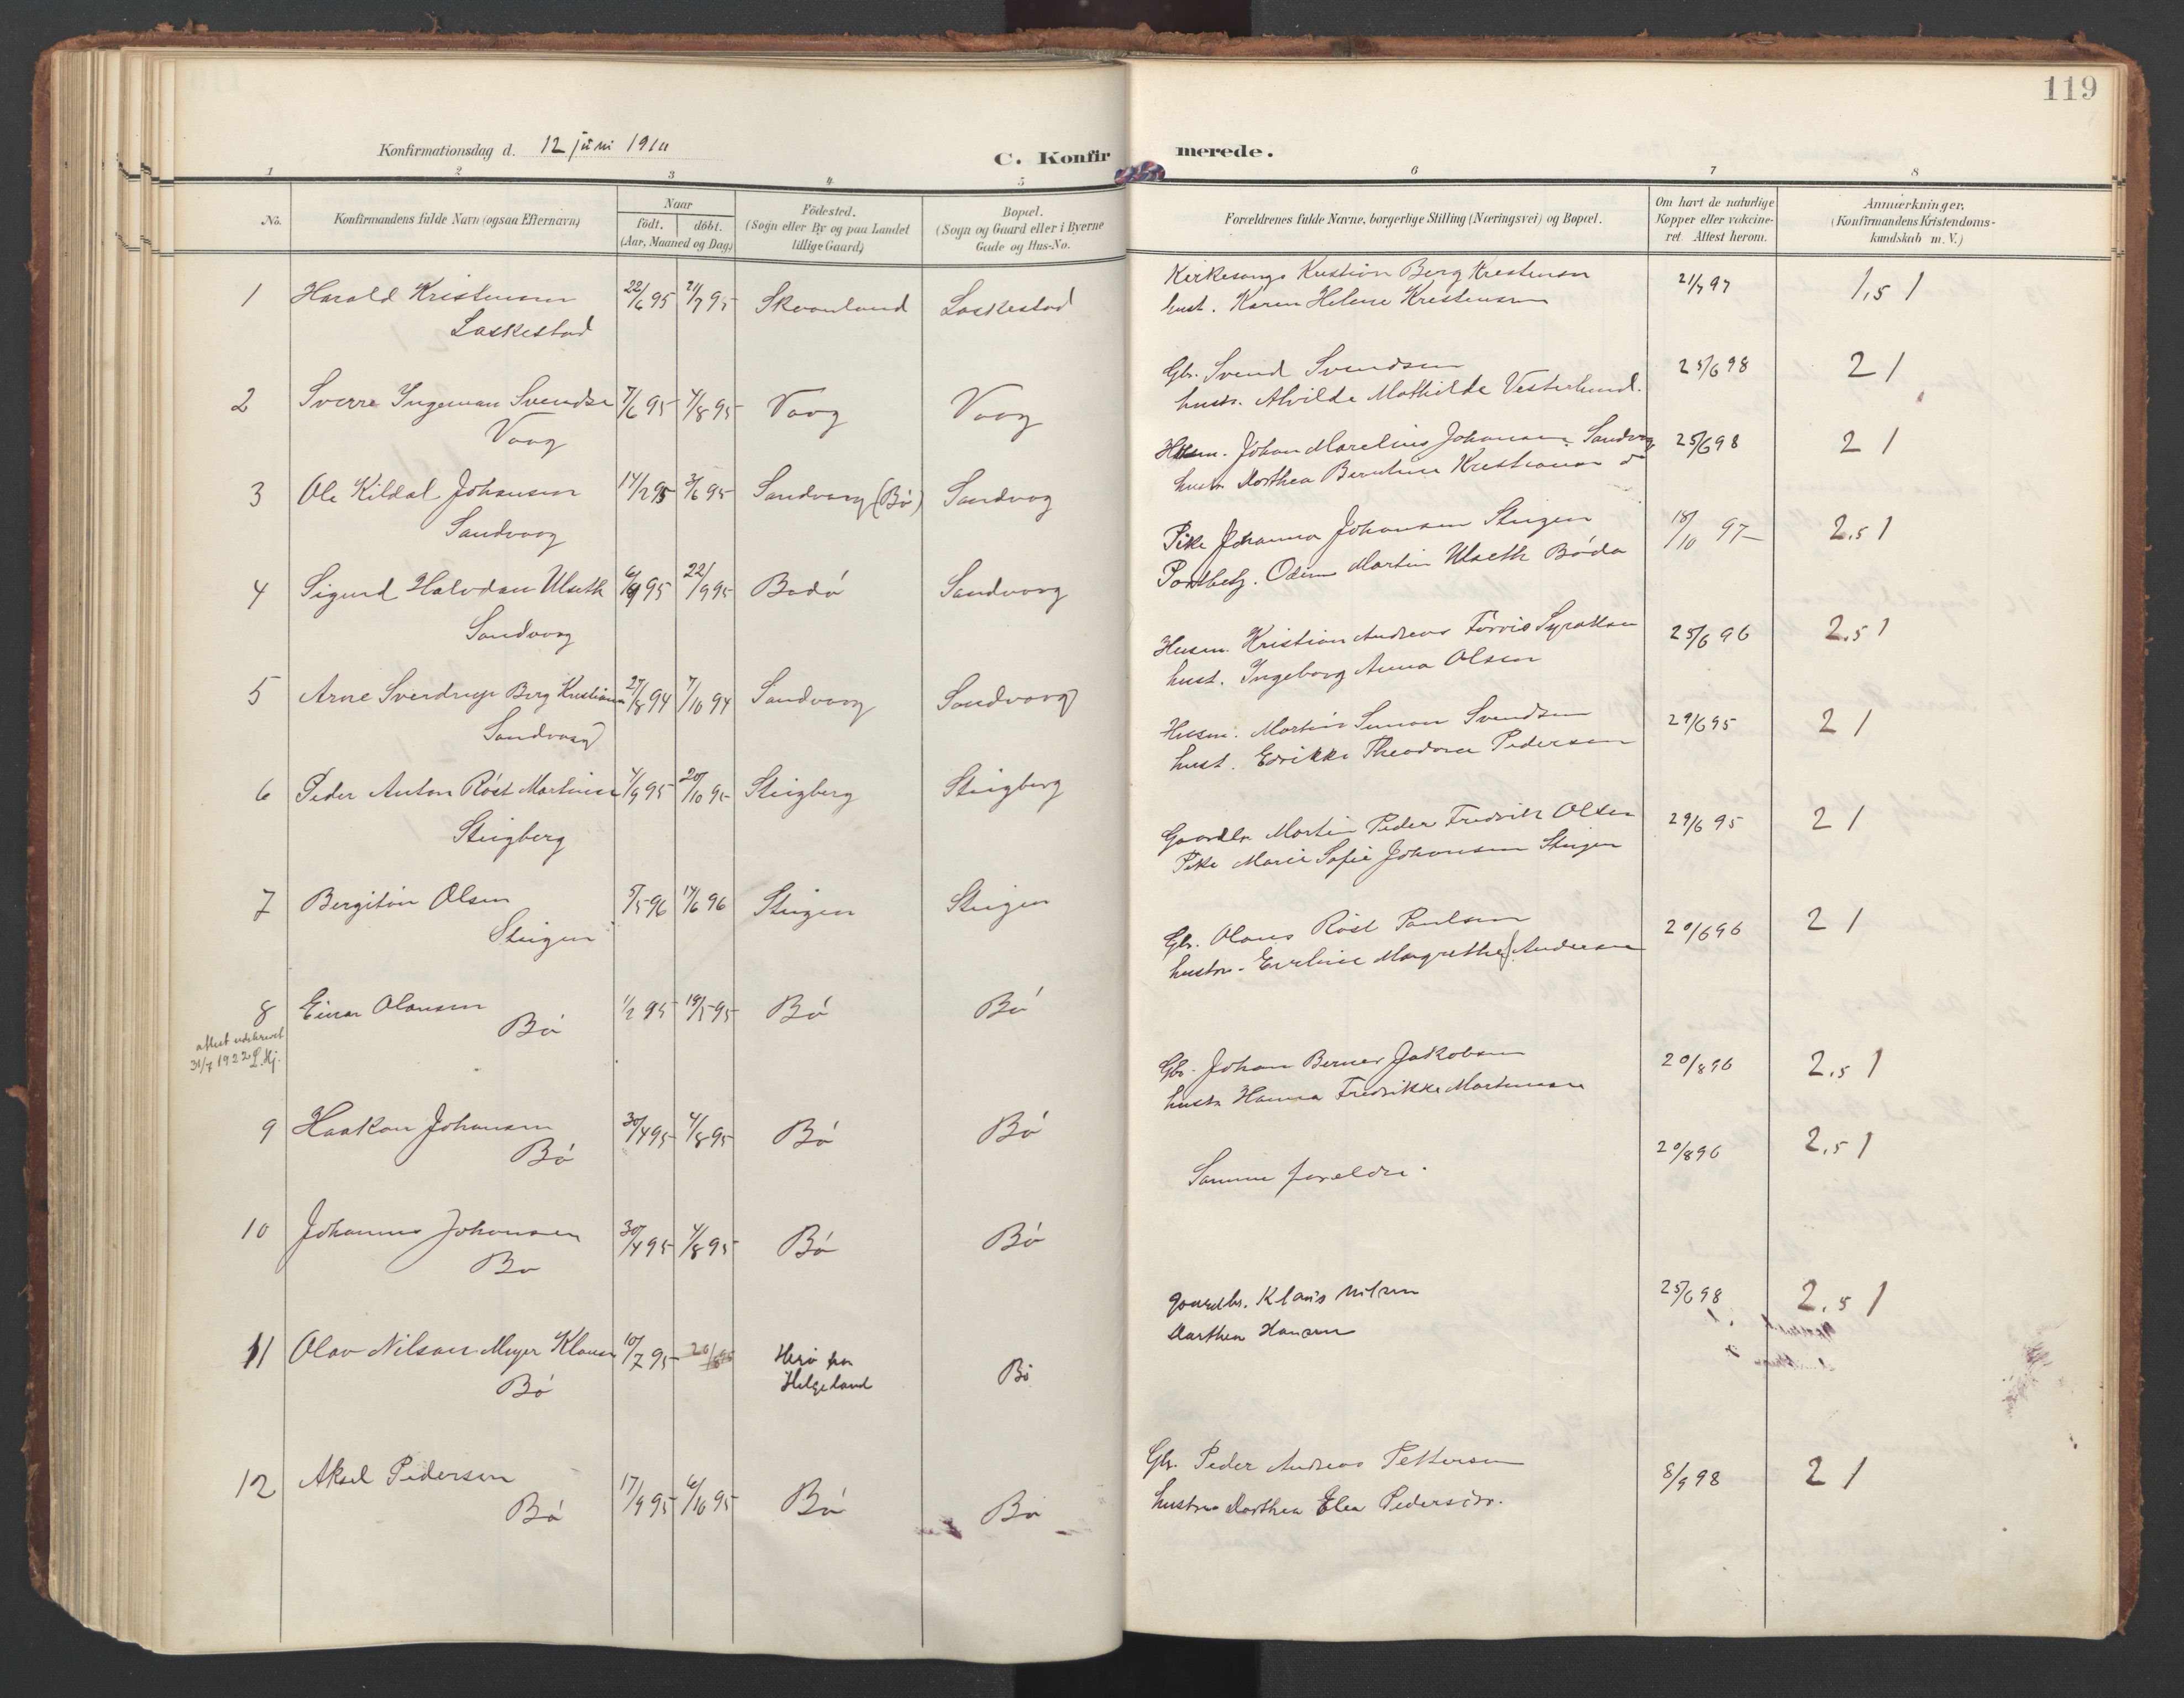 119
Konfirmationsdag d. 12 juni 1910
C. Konfirmerede.
1 2 3 4 5 6 7 8
No.
Konfirmandens fulde Navn (ogsaa Efternavn)
Naar
födt. döbt.
(Aar, Maaned og Dag)
Födested.
(Sogn eller By og paa Landet
tillige Gaard)
Bopæl.
(Sogn og Gaard eller i Byerne
Gade og Hus-No.
Forældrenes fulde Navne, borgerlige Stilling (Næringsvei) og Bopæl.
Om havt de naturlige
Kopper eller vakcine-
ret. Attest herom.
Anmærkninger,
(Konfirmandens Kristendoms-
kundskab m. V.)
1 Harald Kristensen 22/6 95 21/7 95 Skaanland Laskestad
Laskestad
Kirkesanger Kristian Berg Kristensen 21/7 97 1,5 1
hust. Karen Helene Kristensen
2 Sverre Ingeman Svendsen 7/6 95 4/8 95 Vaag Vaag
Vaag
Gbr. Svend Svendsen 25/6 98 2 1
hustr. Alvilde Mathilde Vesterlund.
3 Ole Kildal Johansen 14/2 95 3/6 95 Sandvaag (Bø) Sandvag
Sandvaag
Husm. Johan Marelius Johansen Sandvag 25/6 98 2 1
hustr. Dorthea Berntine Kristiansen do
4 Sigurd Halvdan Ulseth 6/9 95 22/9 95 Bodø Sandvaag
Sandvaag
Pike Johanna Johansen Steigen 18/10 97 2,5 1
Postbetj. Odin Martin Ulseth Bodø
5 Arne Sverdrup Berg Kristiansen 27/8 94 7/10 94 Sandvaag Sandvaag
Sandvaag
Husm. Kristian Andreas Førris Syvatsen 25/6 96 2,5 1
hust. Ingeborg Anna Olsen
6 Peder Anton Røst Martinsen 4/9 95 20/10 95 Steigberg Steigberg
Steigberg
Husm. Martin Simon Svendsen 29/6 95 2 1
hust. Edrikke Theodora Pedersen
7 Bergiton Olsen 5/5 96 14/6 96 Steigen Steigen
Steigen
Gaardbr. Martin Peder Fredrik Olsen 29/6 95 2 1
Pike Marie Sofie Johansen Steigen
8 Einar Olausen 1/2 95 19/5 95 Bø Bø
Bø
attest udskrevet
31/7 1922 L. Hj.
Gbr. Olaus Røst Paulsen 20/6 96 2 1
hustr. Eveline Margrethe Andersen
9 Haakon Johansen 30/4 95 4/8 95 Bø Bø
Bø
Gbr. Johan Berner Jakobsen 20/8 96 2,5 1
hustr Hanna Fredrikke Martinsen
10 Johannes Johansen 30/4 95 4/8 95 Bø Bø
Bø
Samme forældre. 20/8 96 2,5 1
11 Olav Nilsen Meyer Klausen 10/7 95 Herø paa Bø
Bø Helgeland
gaardbr. Klaus Nilsen 25/6 98 2,5 1
Dorthea Hansen
12 Aksel Pedersen 17/9 95 6/10 95 Bø Bø
Bø
Gbr. Peder Andreas Pettersen 8/9 98 2 1
hustru Dorthea Elea Pedersdtr.